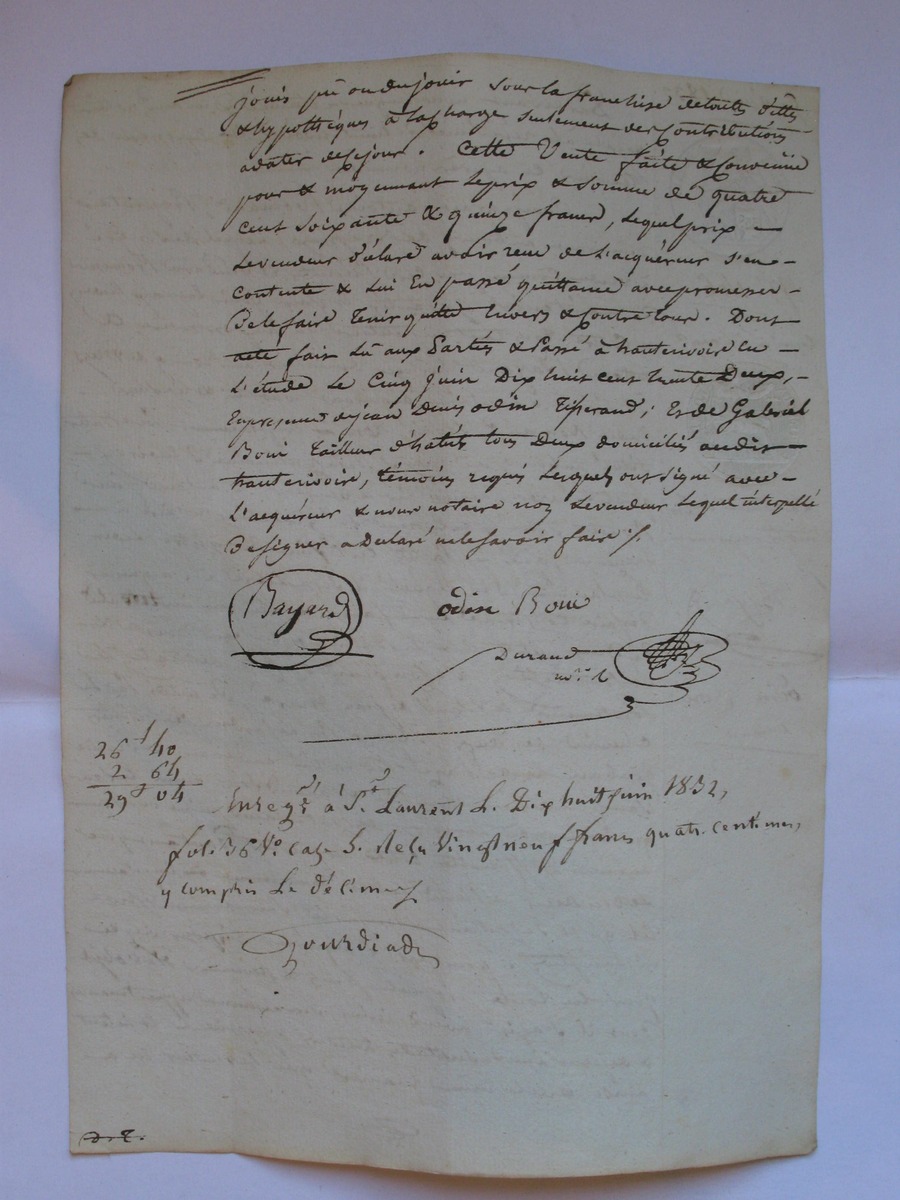 jouis pû ou du jouir sous la franchise de touttes dettes
& hypothèques à la charge seulement des Contributions
a dater de ce jour. Cette Vente faite & Convenüe
pour & moyennant le prix & Somme de quatre
cent soixante & quinze francs, lequel prix —
Le vendeur déclare avoir reçu de L'acquéreur s'en —
contente & Lui En passé quittance avec promesse —
De le faire Tenir quitte Envers & Contre tous. Dont
acte fait Lû aux Parties & Passé à hauterivoire En —
L'étude Le Cinq Juin Dix huit cent trente Deux, —
En présence de jean Denis odin Tisserand, Et de Gabriel
Boui Tailleur d'habits tous Deux domiciliés audit —
hauterivoire, témoins requis Lesquels ont signé avec —
L'acquéreur & nous notaire non Le vendeur Lequel interpellé
De signer a Déclaré ne le savoir faire /.
Bayard odin Boui
Durand
nore
26 f 40
2 64
29 f 04
Enregré à St Laurent Le Dix huit juin 1832,
fol. 36 Vo. case 5. Reçu Vingt neuf francs quatre centimes,
y compris Le décime
D. T.